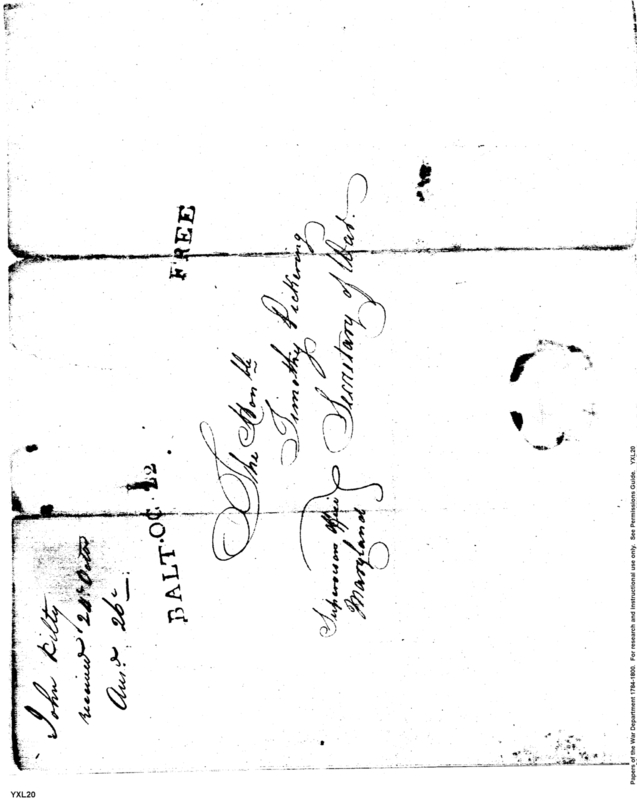 John Kilty
received 24th Octor
Ansd. 26th
BALT. OC 22
FREE
The Honble
Timothy Pickering
Secretary of War.
Supervisors Office
Maryland
Papers of the War Department 1784-1800. For research and instructional use only. See Permissions Guide. YXL20
YXL20